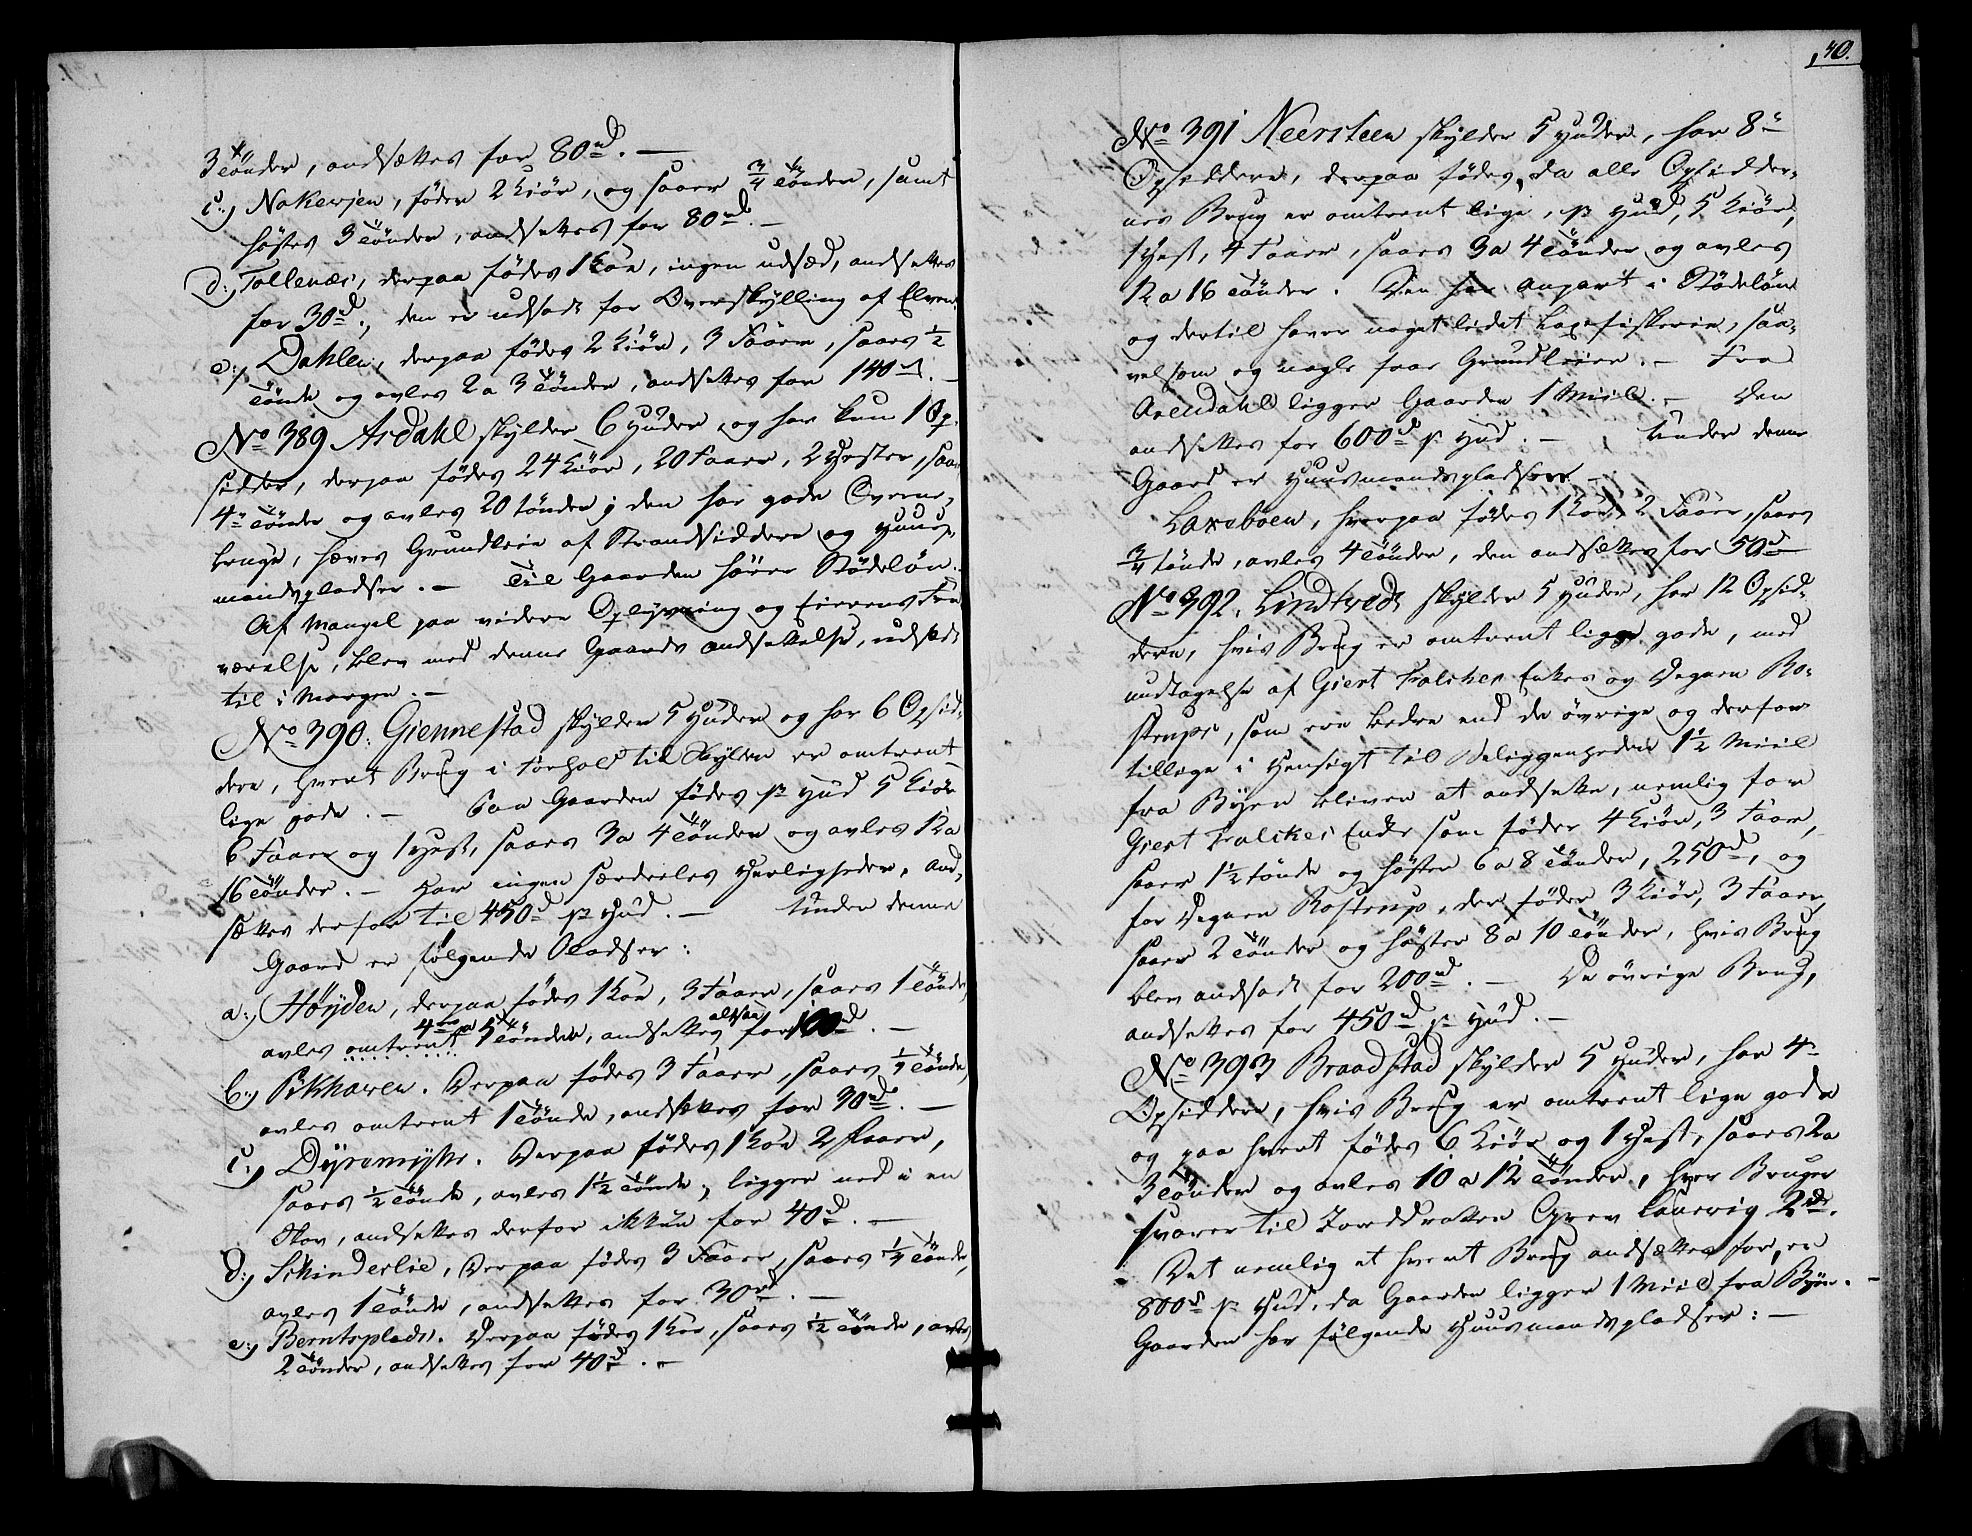 3 Tönder, andsættes for 80rd. —
c:, Nakersen, föder 2 Kiör, og saaer 3/4 Tönder, samt
höstes 3 Tönder, andsettes for 80rd. —
d:, Tollenæs, derpaa födes 1 Koe, ingen udsæd, andsettes
for 30rd, den er udsadt for Överskylling af Elven.
e:, Dahlen, derpaa födes 2 Kiör, 3 Faarer, saaes 1/2
Tönde og avles 2 a 3 Tönder, andsettes for 140rd. —
No 389 Asdahl skylder 6 Huder, og har kun 1 Op-
sidder, derpaa födes 24 Kiör, 20 Faarer, 2 Hester, saaes
4re Tönder og avles 20 Tönder; den har gode
hæves Grundleie af Strandsiddere og Huus-
mandspladser. — Til Gaarden hörer Rödeløn.
Af Mangel paa videre Oplysning og Eierens Fra
værelse, blev med denne Gaards andsettelse, udsadt
til i Morgen. —
No 390: Giennestad skylder 5 Huder og har 6 Opsid-
dere, hvert Brug i Forhold til Skylden er omtrent
lige gode. — Paa Gaarden födes pr Hud 5 Kiör
6 Faarer og 1 Hest, saaes 3 a 4 Tönder og avles 12 a
16 Tönder. — Har ingen særdeeles Herligheder, and-
sættes derfor til 450rd pr Hud. — Under denne
Gaard er følgende Pladser:
a:, Höyden, derpaa födes 1 Koe, 3 Faarer, saaes 1 Tönde,
avles omtrent 4re a 5 Tönder, andsettes altsaa for 100rd. —
b:, Pikhawen. Derpaa födes 3 Faarer, saaes 1/4 Tönde,
avles omtrent 1 Tönde, andsettes for 30rd. —
c:, Dyremyhr. Derpaa födes 1 Koe 2 Faarer,
saaes 1/2 Tönde, avles 1 1/2 Tönde, ligger ved i en
Skov, andsettes derfor ikkun for 40rd. —
d:, Schinderlie, Derpaa födes 3 Faarer, saaes 1/4 Tönde,
avles 1 Tönde, andsettes for 30rd. —
e:, Berntsplads. Derpaa födes 1 Koe, saaes 1/2 Tönde, avles
2 Tönder, andsettes for 40rd. —
40.
No 391 Neersteen skylder 5 Huder, har 8te
Opsiddere, derpaa födes, da alle Opsidder-
nes Brug er omtrent lige, pr Hud, 5 Kiör,
1 Hest, 4 Faarer, saaes 3 a 4 Tönder og avles
12 a 16 Tönder. Den har anpart i Rödeløn
og dertil haver noget lidet Laxefiskerie, saa-
velsom og nogle faae Grundleier. — Fra
Arendahl ligger Gaarden 1 Miil. — Den
andsettes for 600rd pr Hud. — Under denne
Gaard er Huusmandspladsen —
Laxeboen, hvorpaa födes 1 Koe, 2 Faarer, saaes
3/4 Tönde, avles 4 Tönder, den andsettes for 50rd
No 392. Lindtvedt skylder 5 Huder, har 12 Opsid-
dere, hvis Brug er omtrent lige gode, med
undtagelse af Giert Falches Enkes og Degnen Ro-
strups, som ere bedre end de övrige og derfor
tillige i Hensigt til Beliggenheden 1 1/2 Miil
fra Byen bliver at andsette, nemlig for
Giert Falckes Enke som föder 4 Kiör, 3 Faar,
saaer 1 1/2 Tönde og höster 6 a 8 Tönder, 250rd, og
for Degnen Rostrup, der föder 3 Kiör, 3 Faarer,
saaer 2 Tönder og höster 8 a 10 Tönder, hvis Brug
blev andsadt for 200rd. — De övrige Brug,
andsettes for 450rd pr Hud. —
No 393 Braadstad skylder 5 Huder, har 4re
Opsiddere, hvis Brug er omtrent lige gode
og paa hvert födes 6 Kiör og 1 Hest, saaes 2 a
3 Tönder og avles 10 a 12 Tönder, hver Bruger
svarer til Jorddrotten Grev Laurvig 2rd.
Det nemlig at hvert Brug andsættes for, er
800rd pr Hud, da Gaarden ligger 1 Miil fra Byen. —
Gaarden har følgende Huusmandspladser: —